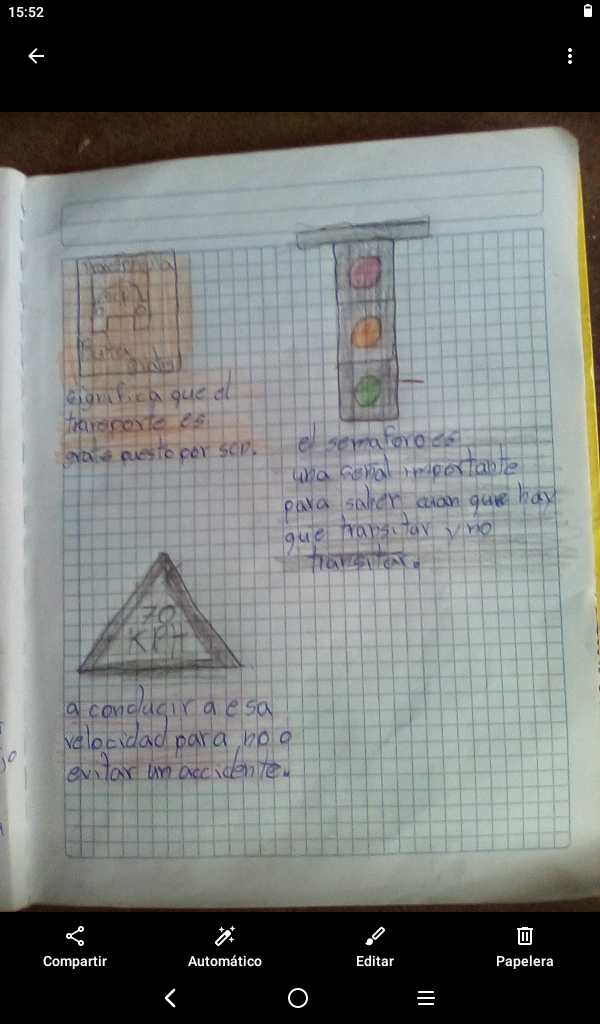 15:52
significa que el
transporte es
gratis puesto por scp.
el semaforo es
una señal importante
para saber cuan que hay
que transitar y no
transitar.
70
KPH
a conducir a esa
velocidad para no o
evitar un accidente.
Compartir
Automático
Editar
Papelera